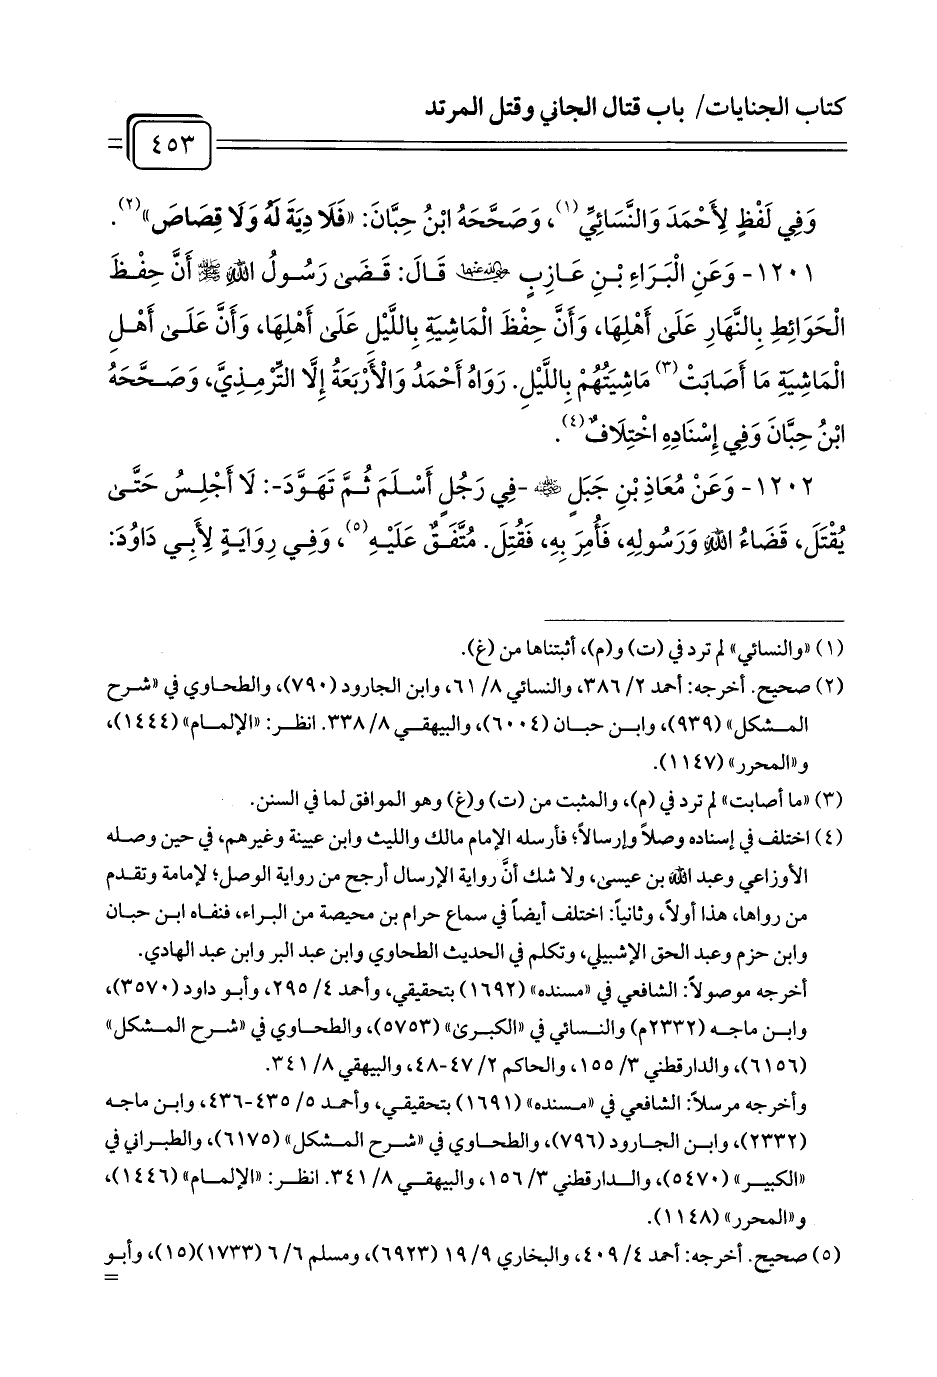 كتاب الجنايات/ باب قتال الجاني وقتل المرتد
٤٥٣
وَفِي لَفْظٍ لِأَحْمَدَ وَالنَّسَائِيِّ(١)، وَصَحَّحَهُ ابْنُ حِبَّانَ: «فَلَا دِيَةَ لَهُ وَلَا قِصَاصَ»(٢).
١٢٠١- وَعَنِ الْبَرَاءِ بْنِ عَازِبٍ رضي الله عنهما قَالَ: قَضَىٰ رَسُولُ اللهِ ﷺ أَنَّ حِفْظَ
الْحَوَائِطِ بِالنَّهَارِ عَلَىٰ أَهْلِهَا، وَأَنَّ حِفْظَ الْمَاشِيَةِ بِاللَّيْلِ عَلَىٰ أَهْلِهَا، وَأَنَّ عَلَىٰ أَهْلِ
الْمَاشِيَةِ مَا أَصَابَتْ(٣) مَاشِيَتُهُمْ بِاللَّيْلِ. رَوَاهُ أَحْمَدُ وَالْأَرْبَعَةُ إِلَّا التِّرْمِذِيَّ، وَصَحَّحَهُ
ابْنُ حِبَّانَ وَفِي إِسْنَادِهِ اخْتِلَافٌ(٤).
١٢٠٢- وَعَنْ مُعَاذِ بْنِ جَبَلٍ رضي الله عنه -فِي رَجُلٍ أَسْلَمَ ثُمَّ تَهَوَّدَ-: لَا أَجْلِسُ حَتَّىٰ
يُقْتَلَ، قَضَاءُ اللهِ وَرَسُولِهِ، فَأُمِرَ بِهِ، فَقُتِلَ. مُتَّفَقٌ عَلَيْهِ(٥)، وَفِي رِوَايَةٍ لِأَبِي دَاوُدَ:
(١) «والنسائي» لم ترد في (ت) و(م)، أثبتناها من (غ).
(٢) صحيح. أخرجه: أحمد ٢/ ٣٨٦، والنسائي ٨/ ٦١، وابن الجارود (٧٩٠)، والطحاوي في «شرح
المشكل» (٩٣٩)، وابن حبان (٦٠٠٤)، والبيهقي ٨/ ٣٣٨. انظر: «الإلمام» (١٤٤٤)،
و«المحرر» (١١٤٧).
(٣) «ما أصابت» لم ترد في (م)، والمثبت من (ت) و(غ) وهو الموافق لما في السنن.
(٤) اختلف في إسناده وصلاً وإرسالاً؛ فأرسله الإمام مالك والليث وابن عيينة وغيرهم، في حين وصله
الأوزاعي وعبد الله بن عيسىٰ، ولا شك أنَّ رواية الإرسال أرجح من رواية الوصل؛ لإمامة وتقدم
من رواها، هذا أولاً، وثانياً: اختلف أيضاً في سماع حرام بن محيصة من البراء، فنفاه ابن حبان
وابن حزم وعبد الحق الإشبيلي، وتكلم في الحديث الطحاوي وابن عبد البر وابن عبد الهادي.
أخرجه موصولاً: الشافعي في «مسنده» (١٦٩٢) بتحقيقي، وأحمد ٤/ ٢٩٥، وأبو داود (٣٥٧٠)،
وابن ماجه (٢٣٣٢م) والنسائي في «الكبرىٰ» (٥٧٥٣)، والطحاوي في «شرح المشكل»
(٦١٥٦)، والدارقطني ٣/ ١٥٥، والحاكم ٢/ ٤٧-٤٨، والبيهقي ٨/ ٣٤١.
وأخرجه مرسلاً: الشافعي في «مسنده» (١٦٩١) بتحقيقي، وأحمد ٥/ ٤٣٥-٤٣٦، وابن ماجه
(٢٣٣٢)، وابن الجارود (٧٩٦)، والطحاوي في «شرح المشكل» (٦١٧٥)، والطبراني في
«الكبير» (٥٤٧٠)، والدارقطني ٣/ ١٥٦، والبيهقي ٨/ ٣٤١. انظر: «الإلمام» (١٤٤٦)،
و«المحرر» (١١٤٨).
(٥) صحيح. أخرجه: أحمد ٤/ ٤٠٩، والبخاري ٩/ ١٩ (٦٩٢٣)، ومسلم ٦/ ٦ (١٧٣٣)(١٥)، وأبو
=